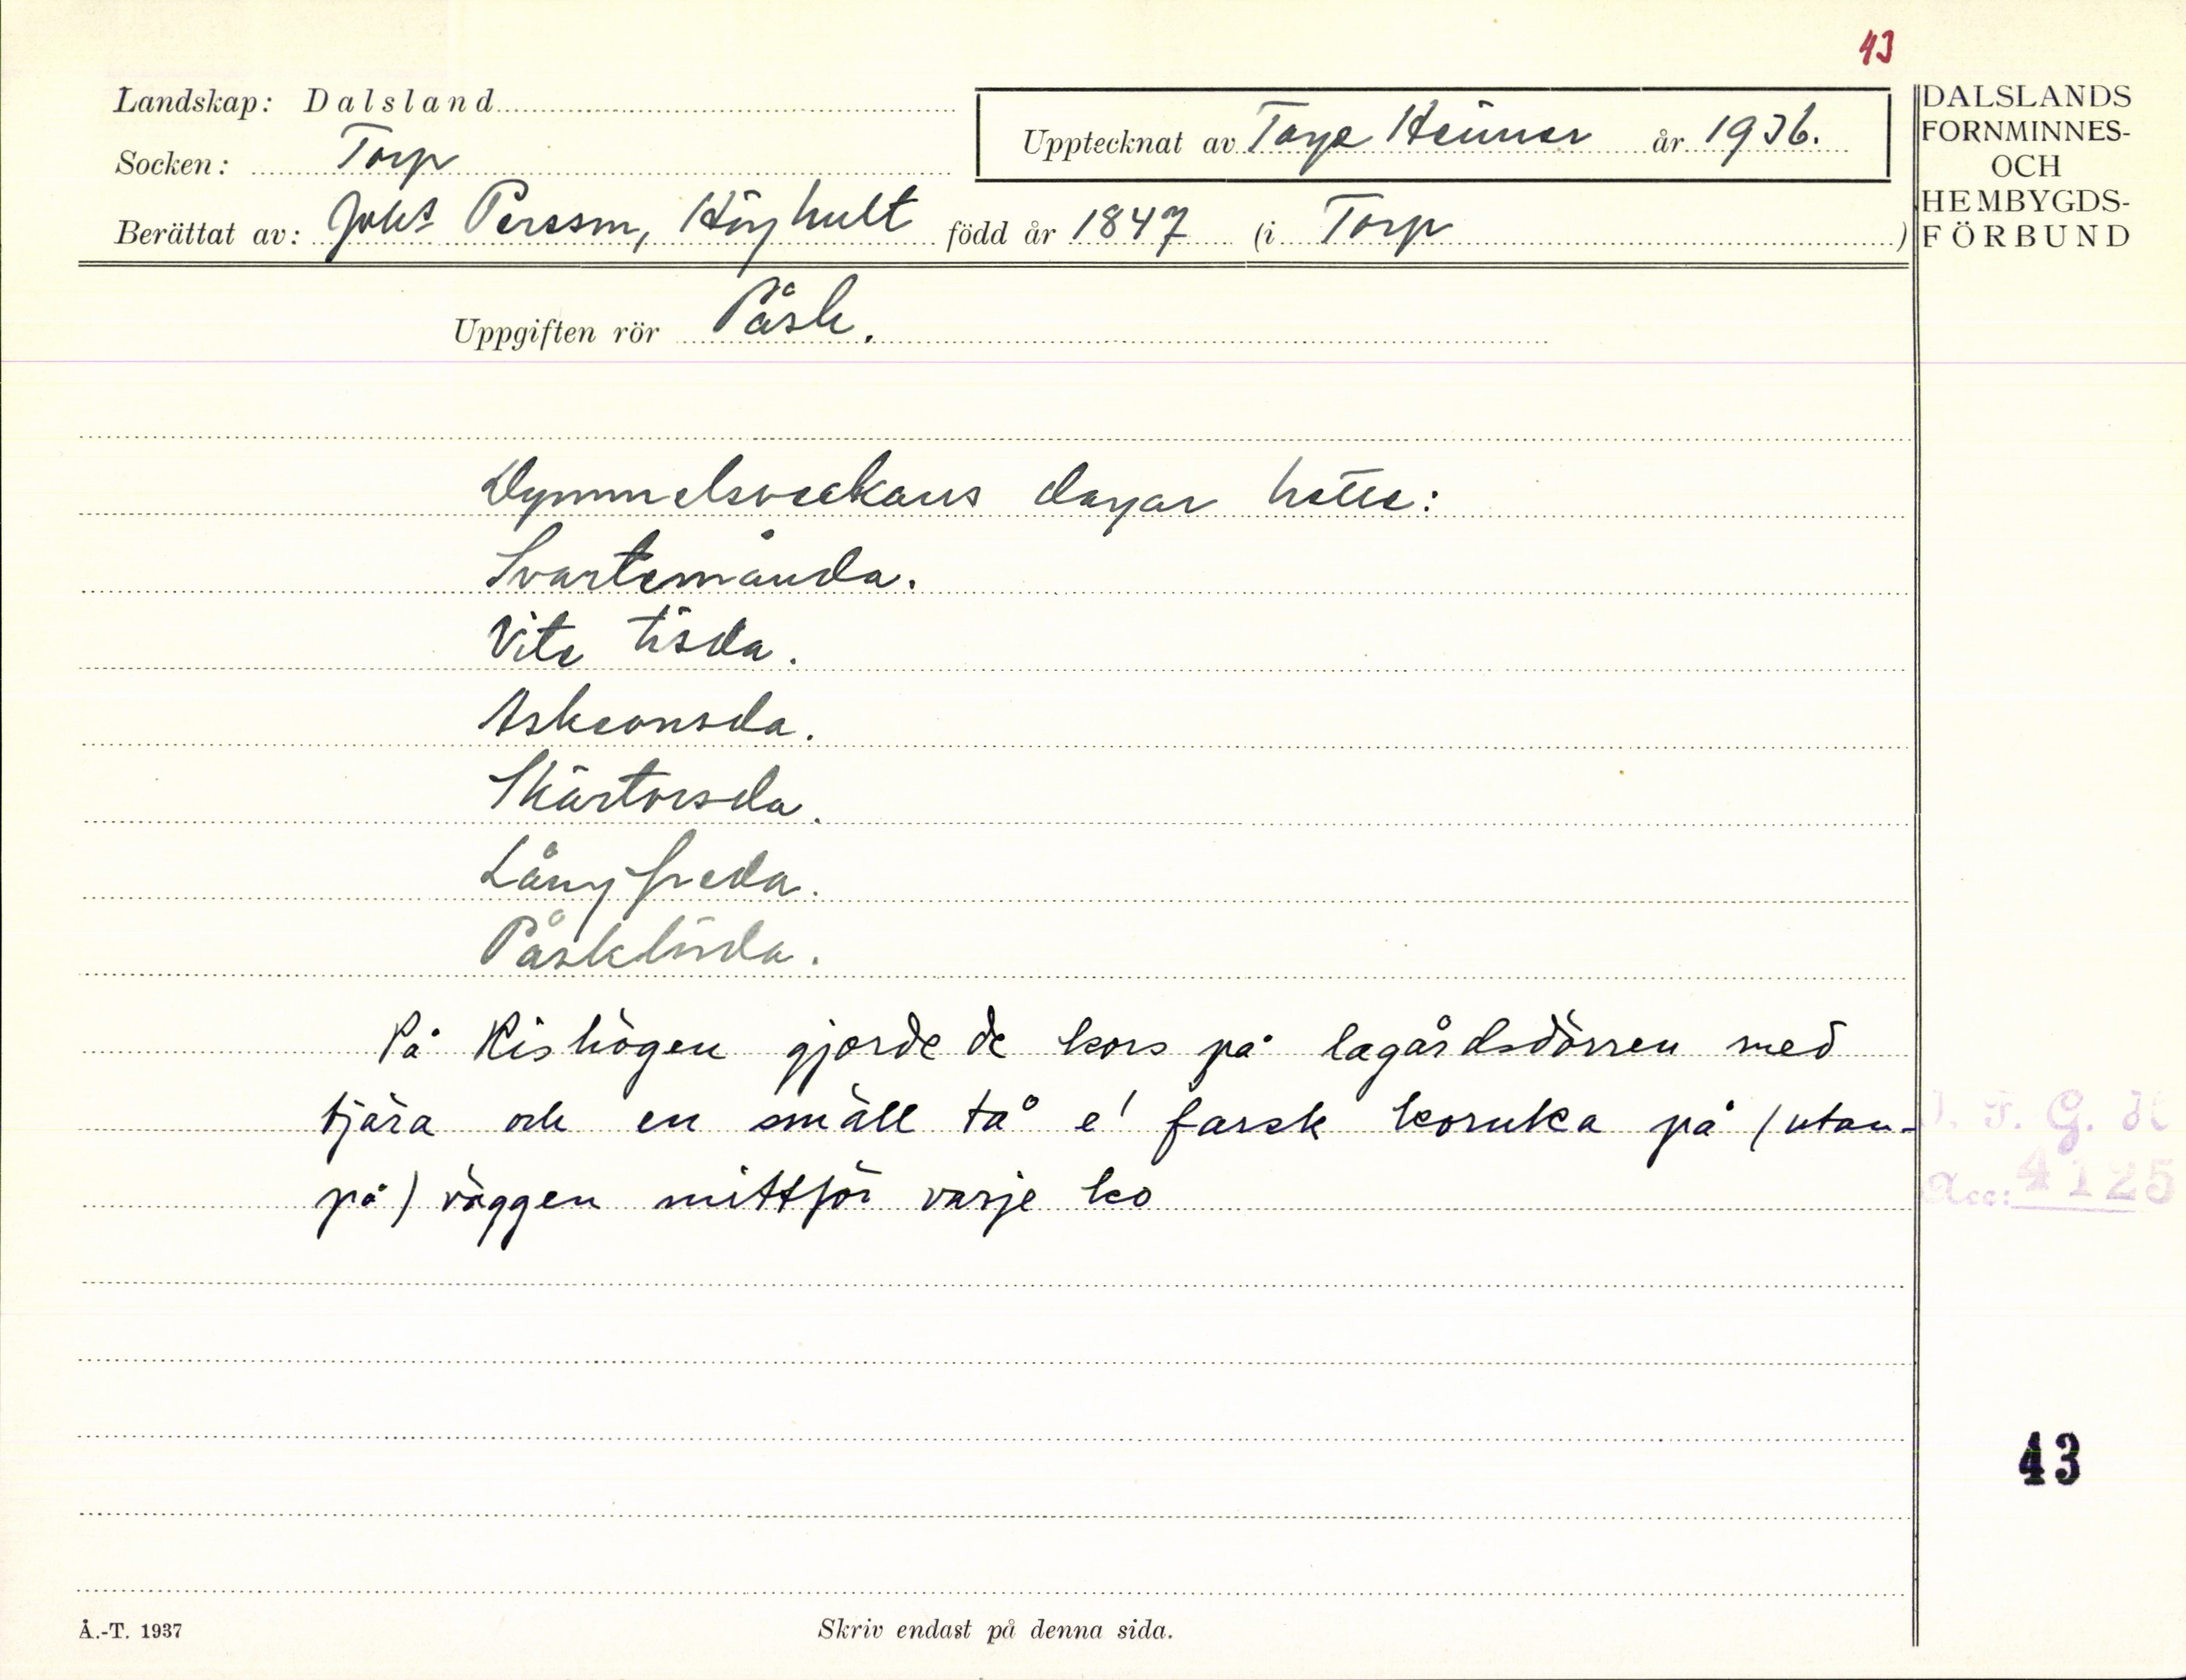 43
Landskap: Dalsland
Socken: Torp
Upptecknat av Tage Heimer år 1936.
Berättat av: Johs Persson, Höghult född år 1847 (i Torp )
DALSLANDS
FORNMINNES-
OCH
HEMBYGDS-
FÖRBUND
Uppgiften rör Påsk.
Dymmelsveckans dagar hette:
Svartemånda.
Vite tisda.
Askeonsda.
Skärtorsda.
Långfreda.
Påsklörda.
På Rishögen gjorde de kors på lagårdsdörren med
tjära och en smäll tå e' farsk koruka på (utan-
på) väggen mittför varje ko
Acc: 4125
43
Å.-T. 1937
Skriv endast på denna sida.